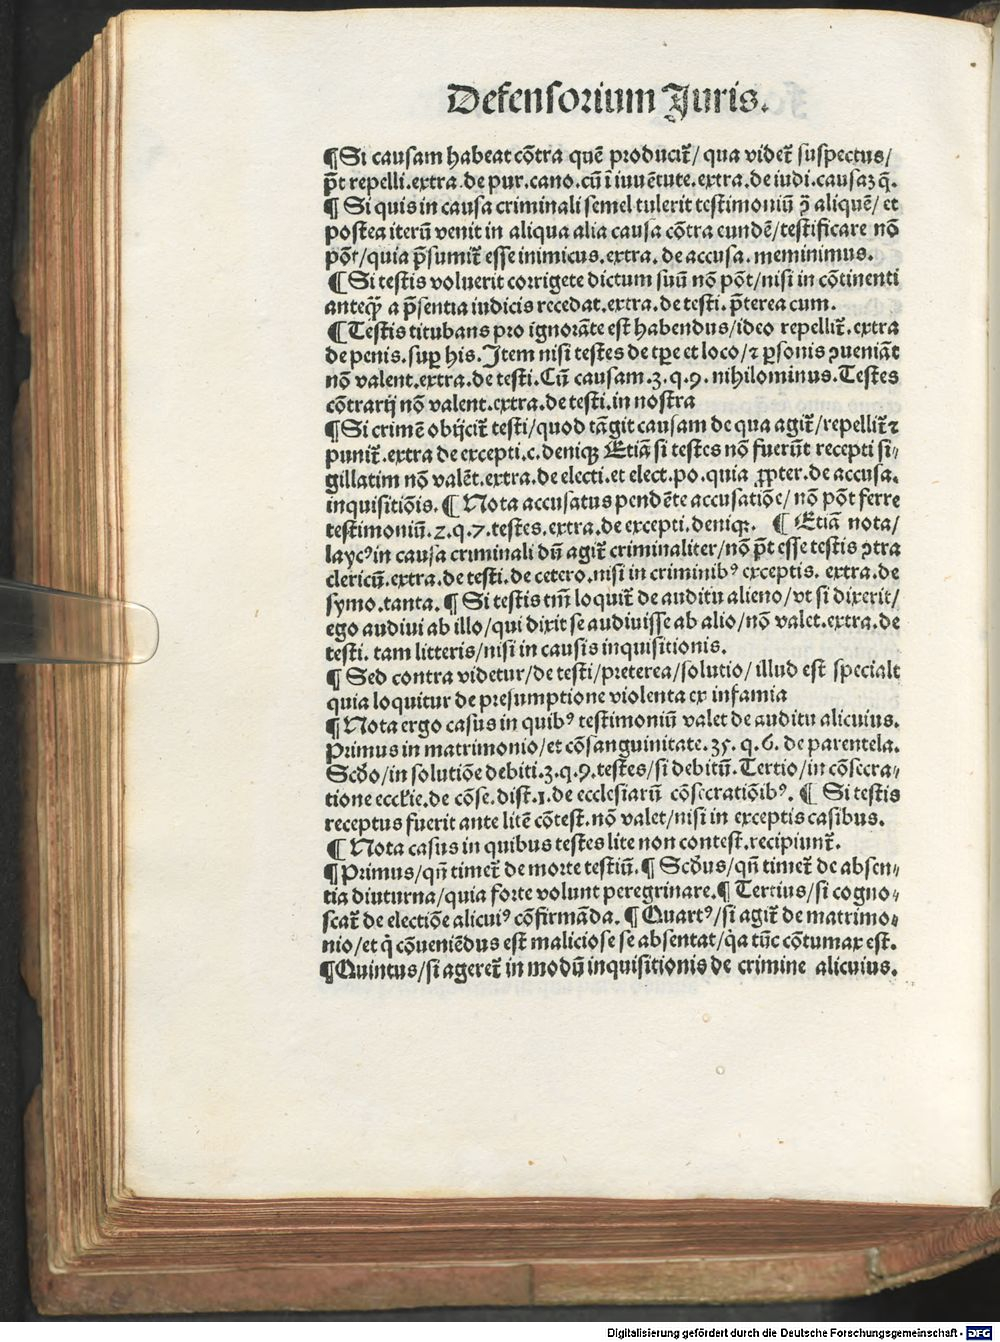 Defensorium Juris.
¶ Si causam habeat cõtra quẽ producit̃/ qua videt̃ suspectus/
p̃t repelli.extra.de pur.cano.cũ ĩ iuuẽtute.extra.de iudi.causaꝫ q̃.
¶ Si quis in causa criminali semel tulerit testimoniũ ꝯ̃ aliquẽ/ et
postea iterũ venit in aliqua alia causa cõtra eundẽ/testificare nõ
põt/quia p̃sumit̃ esse inimicus.extra. de accusa. meminimus.
¶ Si testis voluerit corrigete dictum suũ nõ põt/nisi in cõtinenti
anteq̃ꝫ a p̃sentia iudicis recedat.extra.de testi. p̃terea cum.
¶ Testis titubans pro ignorãte est habendus/ideo repellit̃.extra
de penis.suꝑ his. Item nisi testes de tꝑe et loco/⁊ ꝑsonis ꝯueniãt
nõ valent.extra.de testi.Cũ causam.3.q.9. nihilominus.Testes
cõtrarij nõ valent.extra.de testi.in nostra
¶ Si crimẽ obijcit̃ testi/quod tãgit causam de qua agit̃/repellit̃ ⁊
punit̃.extra de excepti.c.deniqꝫ Etiã si testes nõ fuerũt recepti si⸗
gillatim nõ valẽt.extra.de electi.et elect.po.quia ꝓpter.de accusa.
inquisitiõis. ¶ Nota accusatus pendẽte accusatiõe/ nõ põt ferre
testimoniũ.2.q.7.testes.extra.de excepti.deniqꝫ. ¶ Etiã nota/
laycꝰ in causa criminali dũ agit̃ criminaliter/nõ p̃t esse testis ꝯtra
clericũ.extra.de testi.de cetero.nisi in criminibꝰ exceptis. extra.de
symo.tanta. ¶ Si testis tm̃ loquit̃ de auditu alieno/vt si dixerit/
ego audiui ab illo/qui dixit se audiuisse ab alio/nõ valet.extra.de
testi. tam litteris/nisi in causis inquisitionis.
¶ Sed contra videtur/de testi/preterea/solutio/ illud est speciale
quia loquitur de presumptione violenta ex infamia
¶ Nota ergo casus in quibꝰ testimoniũ valet de auditu alicuius.
Primus in matrimonio/et cõsanguinitate.35. q.6. de parentela.
Scďo/in solutiõe debiti.3.q.9.testes/si debitũ.Tertio/in cõsecra⸗
tione eccl̃ie.de cõse.dist.1.de ecclesiarũ cõsecratiõibꝰ. ¶ Si testis
receptus fuerit ante litẽ cõtest.nõ valet/nisi in exceptis casibus.
¶ Nota casus in quibus testes lite non contest.recipiunt̃.
¶ Primus/qñ timet̃ de morte testiũ. ¶ Scďus/qñ timet̃ de absen⸗
tia diuturna/quia forte volunt peregrinare.¶ Tertius/si cogno⸗
scat̃ de electiõe alicuiꝰ cõfirmãda. ¶ Quartꝰ/si agit̃ de matrimo⸗
nio/et q̇ cõueniẽdus est maliciose se absentat/q̇a tũc cõtumax est.
¶ Quintus/si ageret̃ in modũ inquisitionis de crimine alicuius.
Digitalisierung gefördert durch die Deutsche Forschungsgemeinschaft - DFG